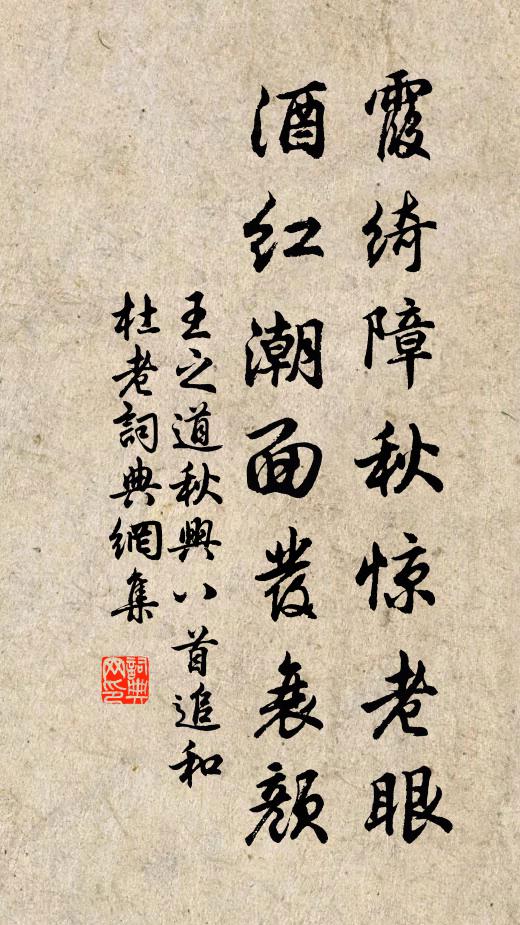 霞绮障秋惊老眼
酒红潮面發衰顔
王之道秋興八首追和
杜老詞典網集
詞典
网印